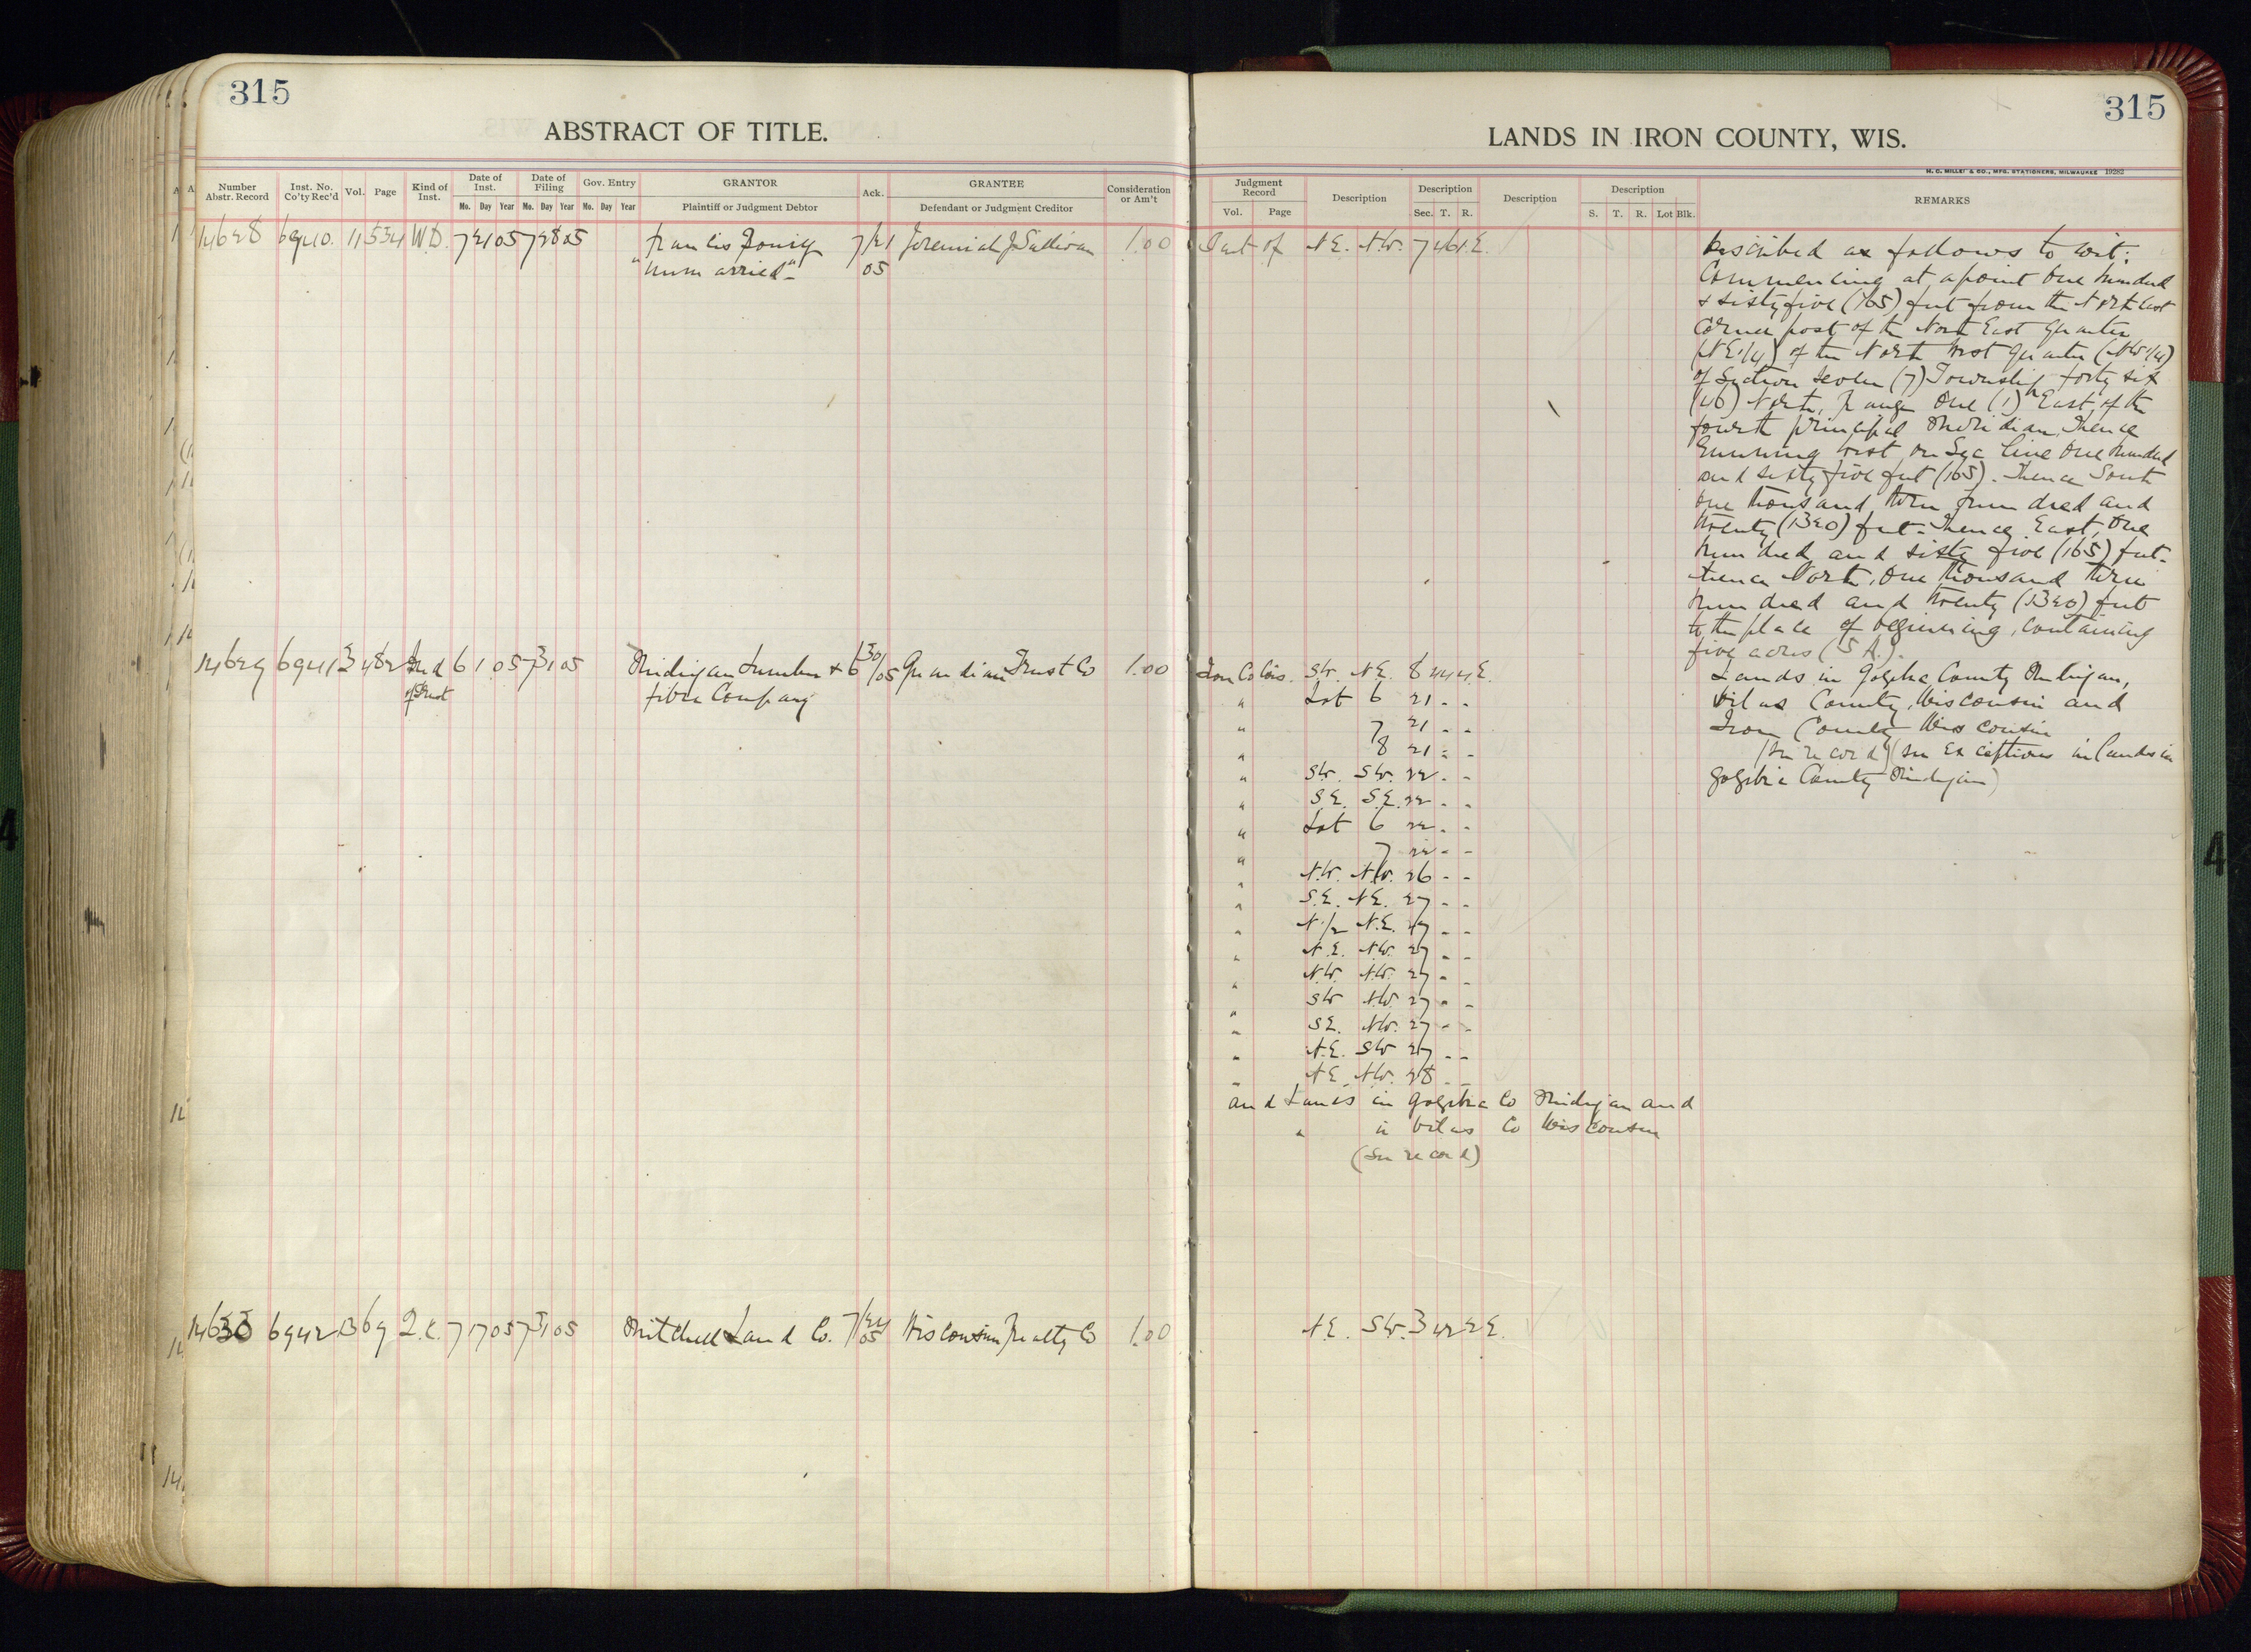 315
ABSTRACT OF TITLE.
Number Abstr. Record
Inst. No. Co'ty Rec'd
Vol.
Page
Kind of Inst.
Date of Inst.
Mo. Day Year
Date of Filing
Mo. Day Year
Gov. Entry
Mo. Day Year
GRANTOR
Plaintiff or Judgment Debtor
Ack.
GRANTEE
Defendant or Judgment Creditor
Consideration or Am't
14628 6940 11 534 W.D. 7 21 05 7 28 05 Francis 7/21 Jeremiah J Sullivan 1.00
"unmarried" 05
14629 6941 3 482 Ind 6 1 05 7 31 05 Michigan Lumber & 6/30/05 Guardian Trust Co 1.00
of Trust Fibre Company
14630 6942 13 69 Q.C. 7 17 05 7 31 05 Mitchell Land Co. 7/24 Wisconsin Realty Co 1.00
05
315
LANDS IN IRON COUNTY, WIS.
H. C. MILLER & CO., MFG. STATIONERS, MILWAUKEE 19282
Judgment Record
Vol. Page
Description
Description
Sec. T. R.
Description
Description
S. T. R. Lot Blk.
REMARKS
Part of N.E. N.W. 7 46 1 E.
Iron Co Wis. S.W. N.E. 8 44 4 E.
" Lot 6 21 - -
" 7 21 - -
" 8 21 - -
" S.W. S.W. 22 - -
" S.E. S.E. 22 - -
" Lot 6 22 - -
" 7 22 - -
" N.W. N.W. 26 - -
" S.E. N.E. 27 - -
" N 1/2 N.E. 27 - -
" N.E. N.W. 27 - -
" N.W. N.W. 27 -
" S.W. N.W. 27 - -
" S.E. N.W. 27 - -
" N.E. S.W. 27 - -
" N.E. N.W. 28 - -
and Lands in Gogebic Co Michigan and
" in Vilas Co Wisconsin
(See record)
N.E. S.W. 3 42 2 E.
Described as follows to wit:
Commencing at a point One hundred
& sixty five (165) feet from the North East
Corner post of the North East Quarter
(NE1/4) of the North West Quarter (NW1/4)
of Section Seven (7) Township forty six
(46) North, Range One (1) East, of the
fourth principal Meridian, Thence
Running West on Sec line One hundred
and sixty five feet (165). Thence South
One thousand three hundred and
twenty (1320) feet - Thence East, One
hundred and sixty five (165) feet -
thence North, One thousand three
hundred and twenty (1320) feet
to the place of beginning, containing
five acres (5 A.).
Lands in Gogebic County Michigan,
Vilas County, Wisconsin and
Iron County Wisconsin
(See record) (See Exceptions in lands in
Gogebic County Michigan)